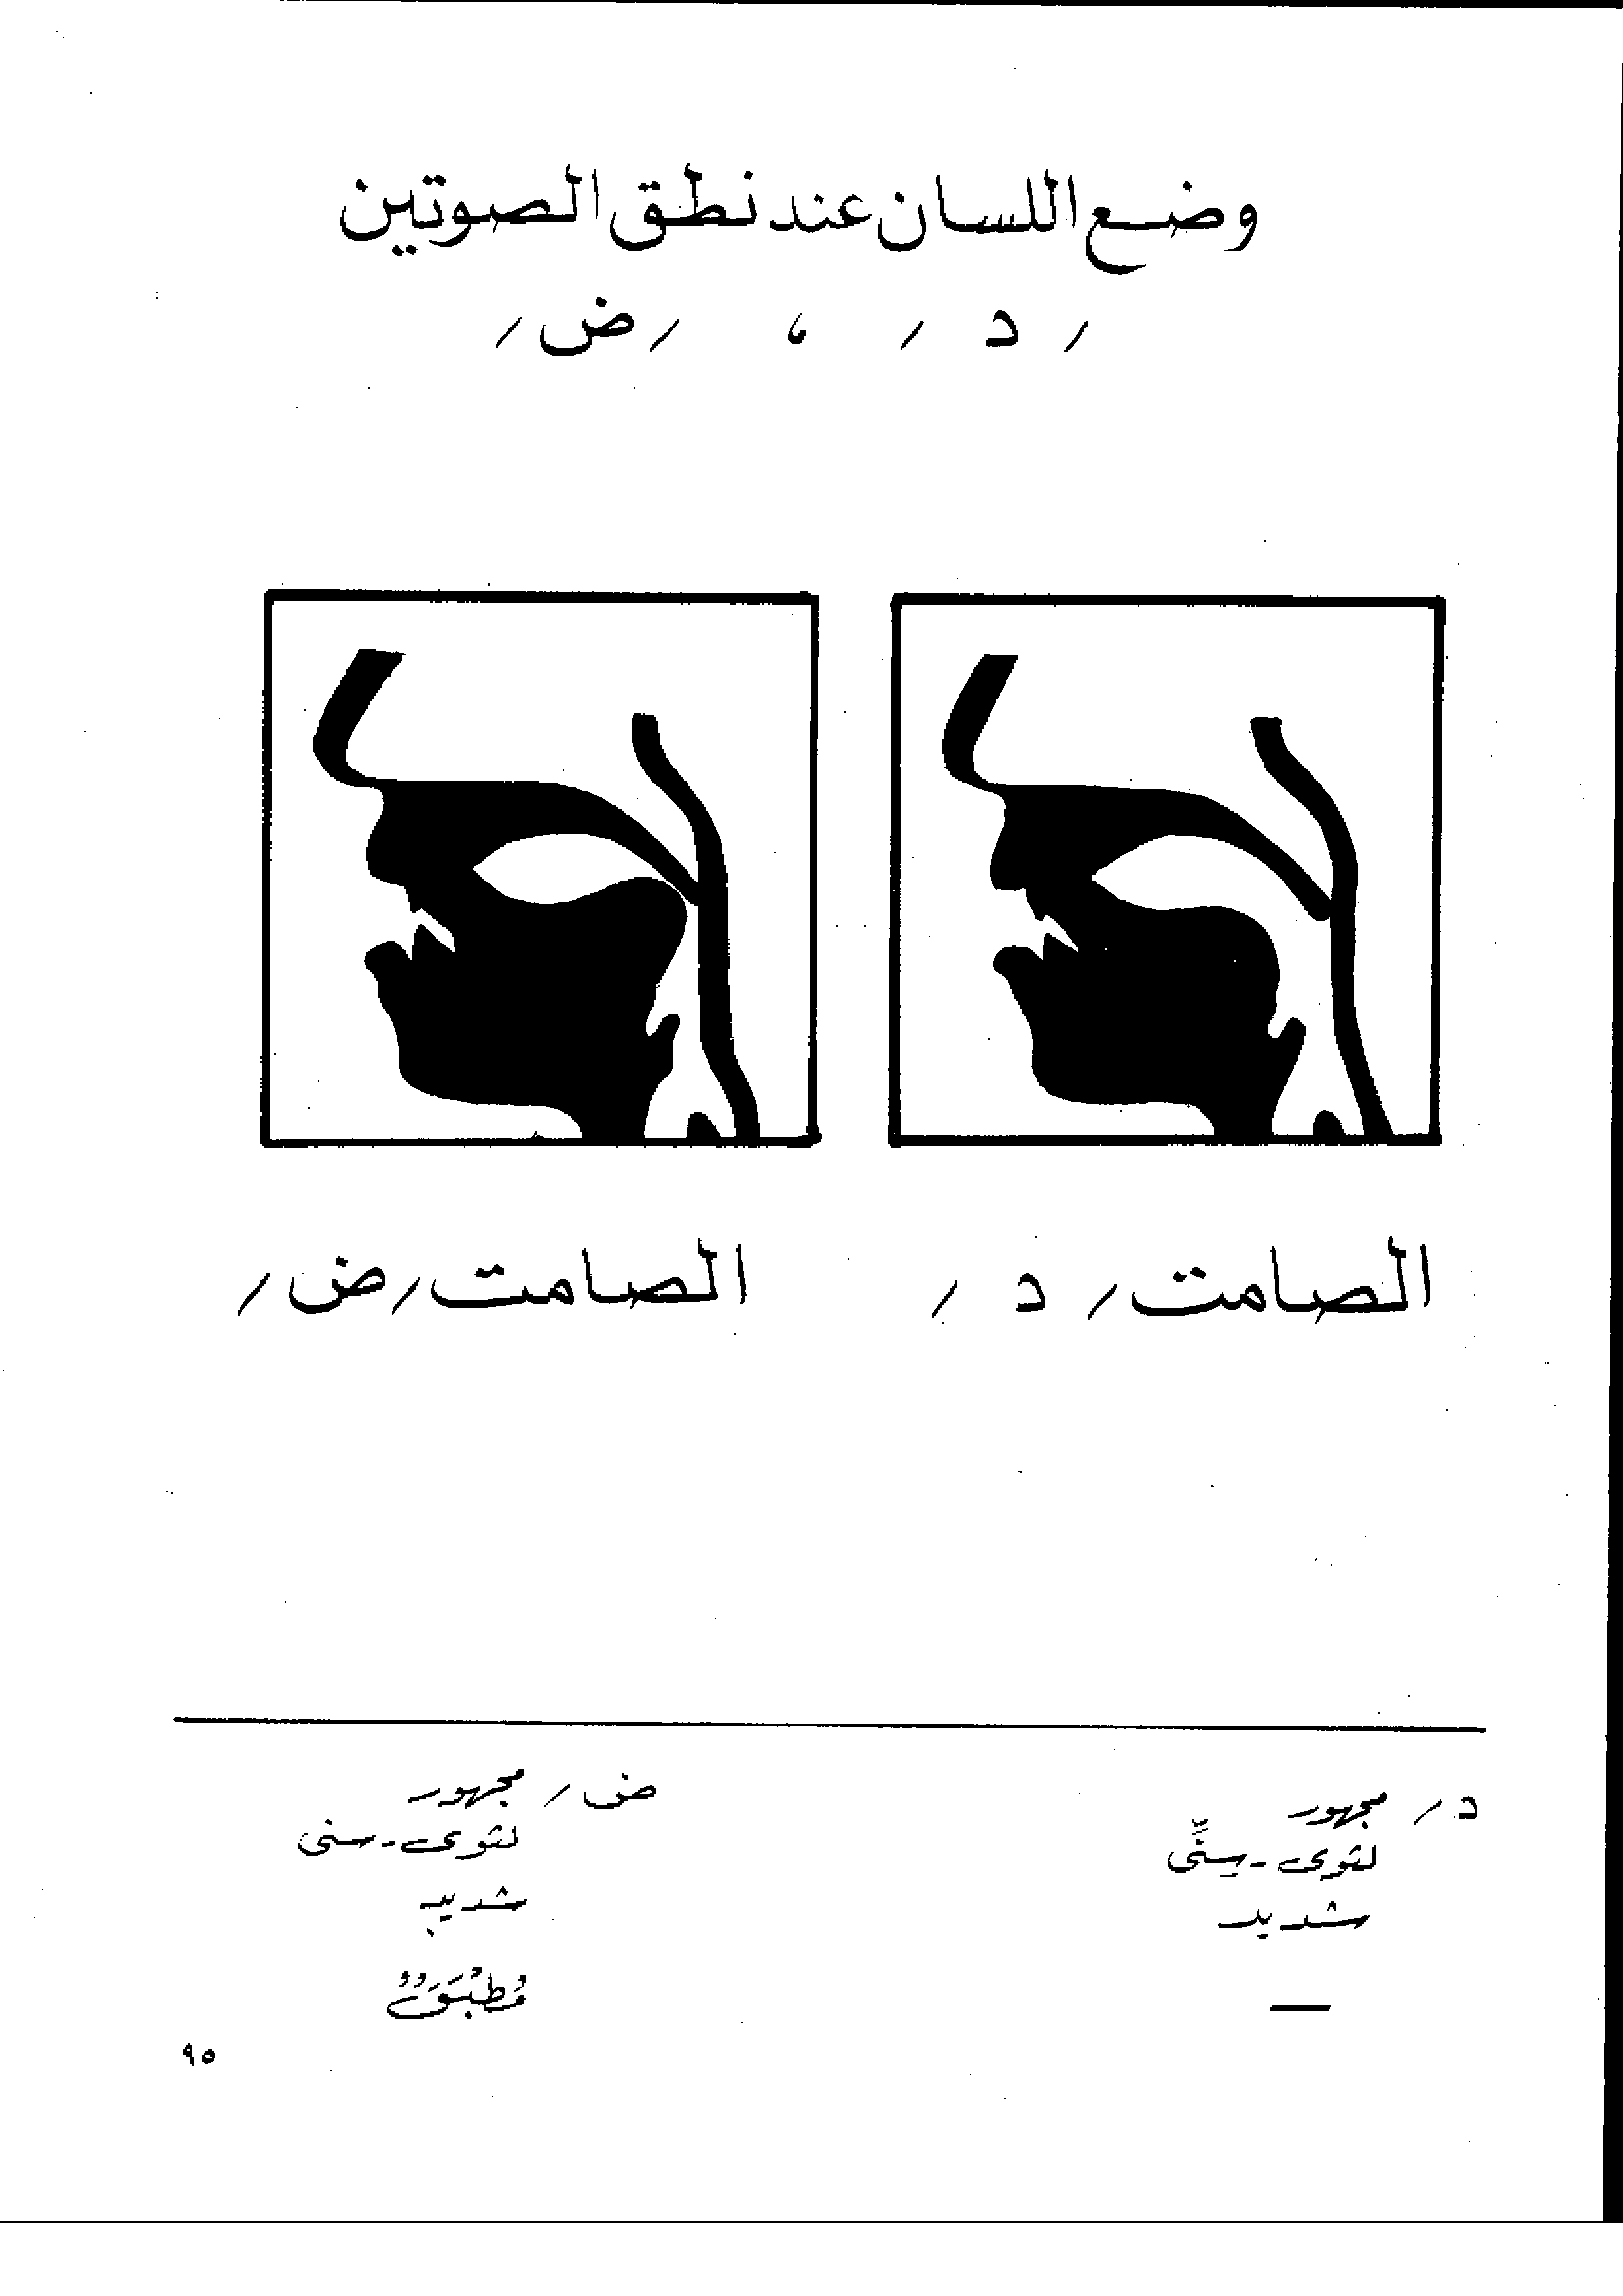 وضع اللسان عند نطق الصوتين
/ د / ، / ض /
الصامت / د /
الصامت / ض /
د / مجهور
لثوى - سِنِّى
شديد
—
ض / مجهور
لثوى - سنى
شديد
مُطبَق
٩٥